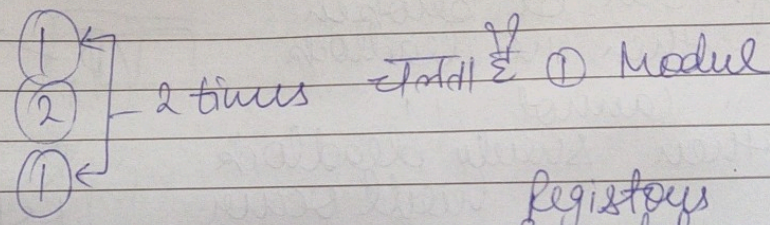 ①
② 2 times चलता है ① Modul
①
Registoys